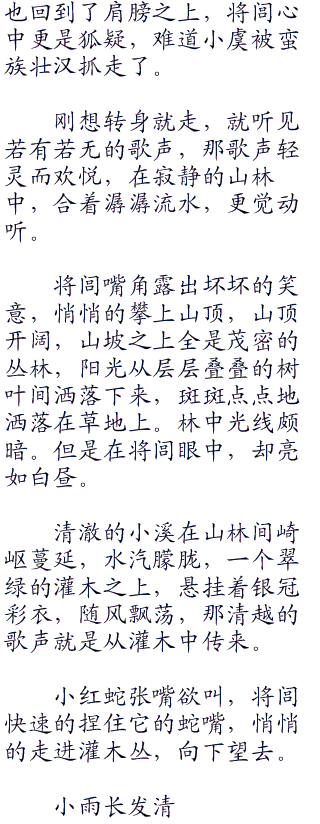 也回到了肩膀之上，将闾心
中更是狐疑，难道小虞被蛮
族壮汉抓走了。
刚想转身就走，就听见
若有若无的歌声，那歌声轻
灵而欢悦，在寂静的山林
中，合着潺潺流水，更觉动
听。
将闾嘴角露出坏坏的笑
意，悄悄的攀上山顶，山顶
开阔，山坡之上全是茂密的
丛林，阳光从层层叠叠的树
叶间洒落下来，斑斑点点地
洒落在草地上。林中光线颇
暗。但是在将闾眼中，却亮
如白昼。
清澈的小溪在山林间崎
岖蔓延，水汽朦胧，一个翠
绿的灌木之上，悬挂着银冠
彩衣，随风飘荡，那清越的
歌声就是从灌木中传来。
小红蛇张嘴欲叫，将闾
快速的捏住它的蛇嘴，悄悄
的走进灌木丛，向下望去。
小雨长发清